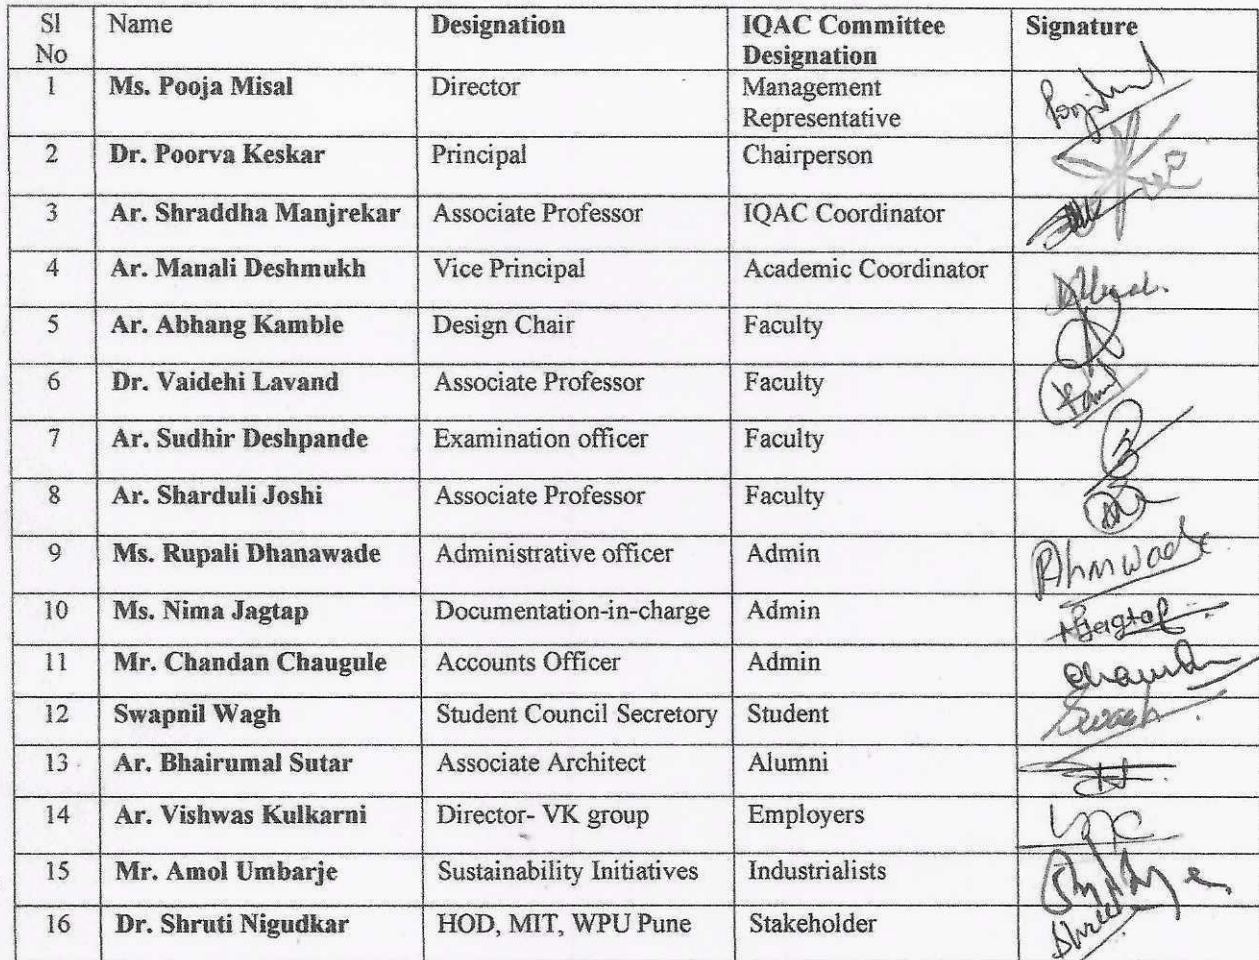 Sl No Name Designation IQAC Committee Designation Signature
1 Ms. Pooja Misal Director Management Representative
2 Dr. Poorva Keskar Principal Chairperson
3 Ar. Shraddha Manjrekar Associate Professor IQAC Coordinator
4 Ar. Manali Deshmukh Vice Principal Academic Coordinator
5 Ar. Abhang Kamble Design Chair Faculty
6 Dr. Vaidehi Lavand Associate Professor Faculty
7 Ar. Sudhir Deshpande Examination officer Faculty
8 Ar. Sharduli Joshi Associate Professor Faculty
9 Ms. Rupali Dhanawade Administrative officer Admin
10 Ms. Nima Jagtap Documentation-in-charge Admin
11 Mr. Chandan Chaugule Accounts Officer Admin
12 Swapnil Wagh Student Council Secretory Student
13 Ar. Bhairumal Sutar Associate Architect Alumni
14 Ar. Vishwas Kulkarni Director- VK group Employers
15 Mr. Amol Umbarje Sustainability Initiatives Industrialists
16 Dr. Shruti Nigudkar HOD, MIT, WPU Pune Stakeholder